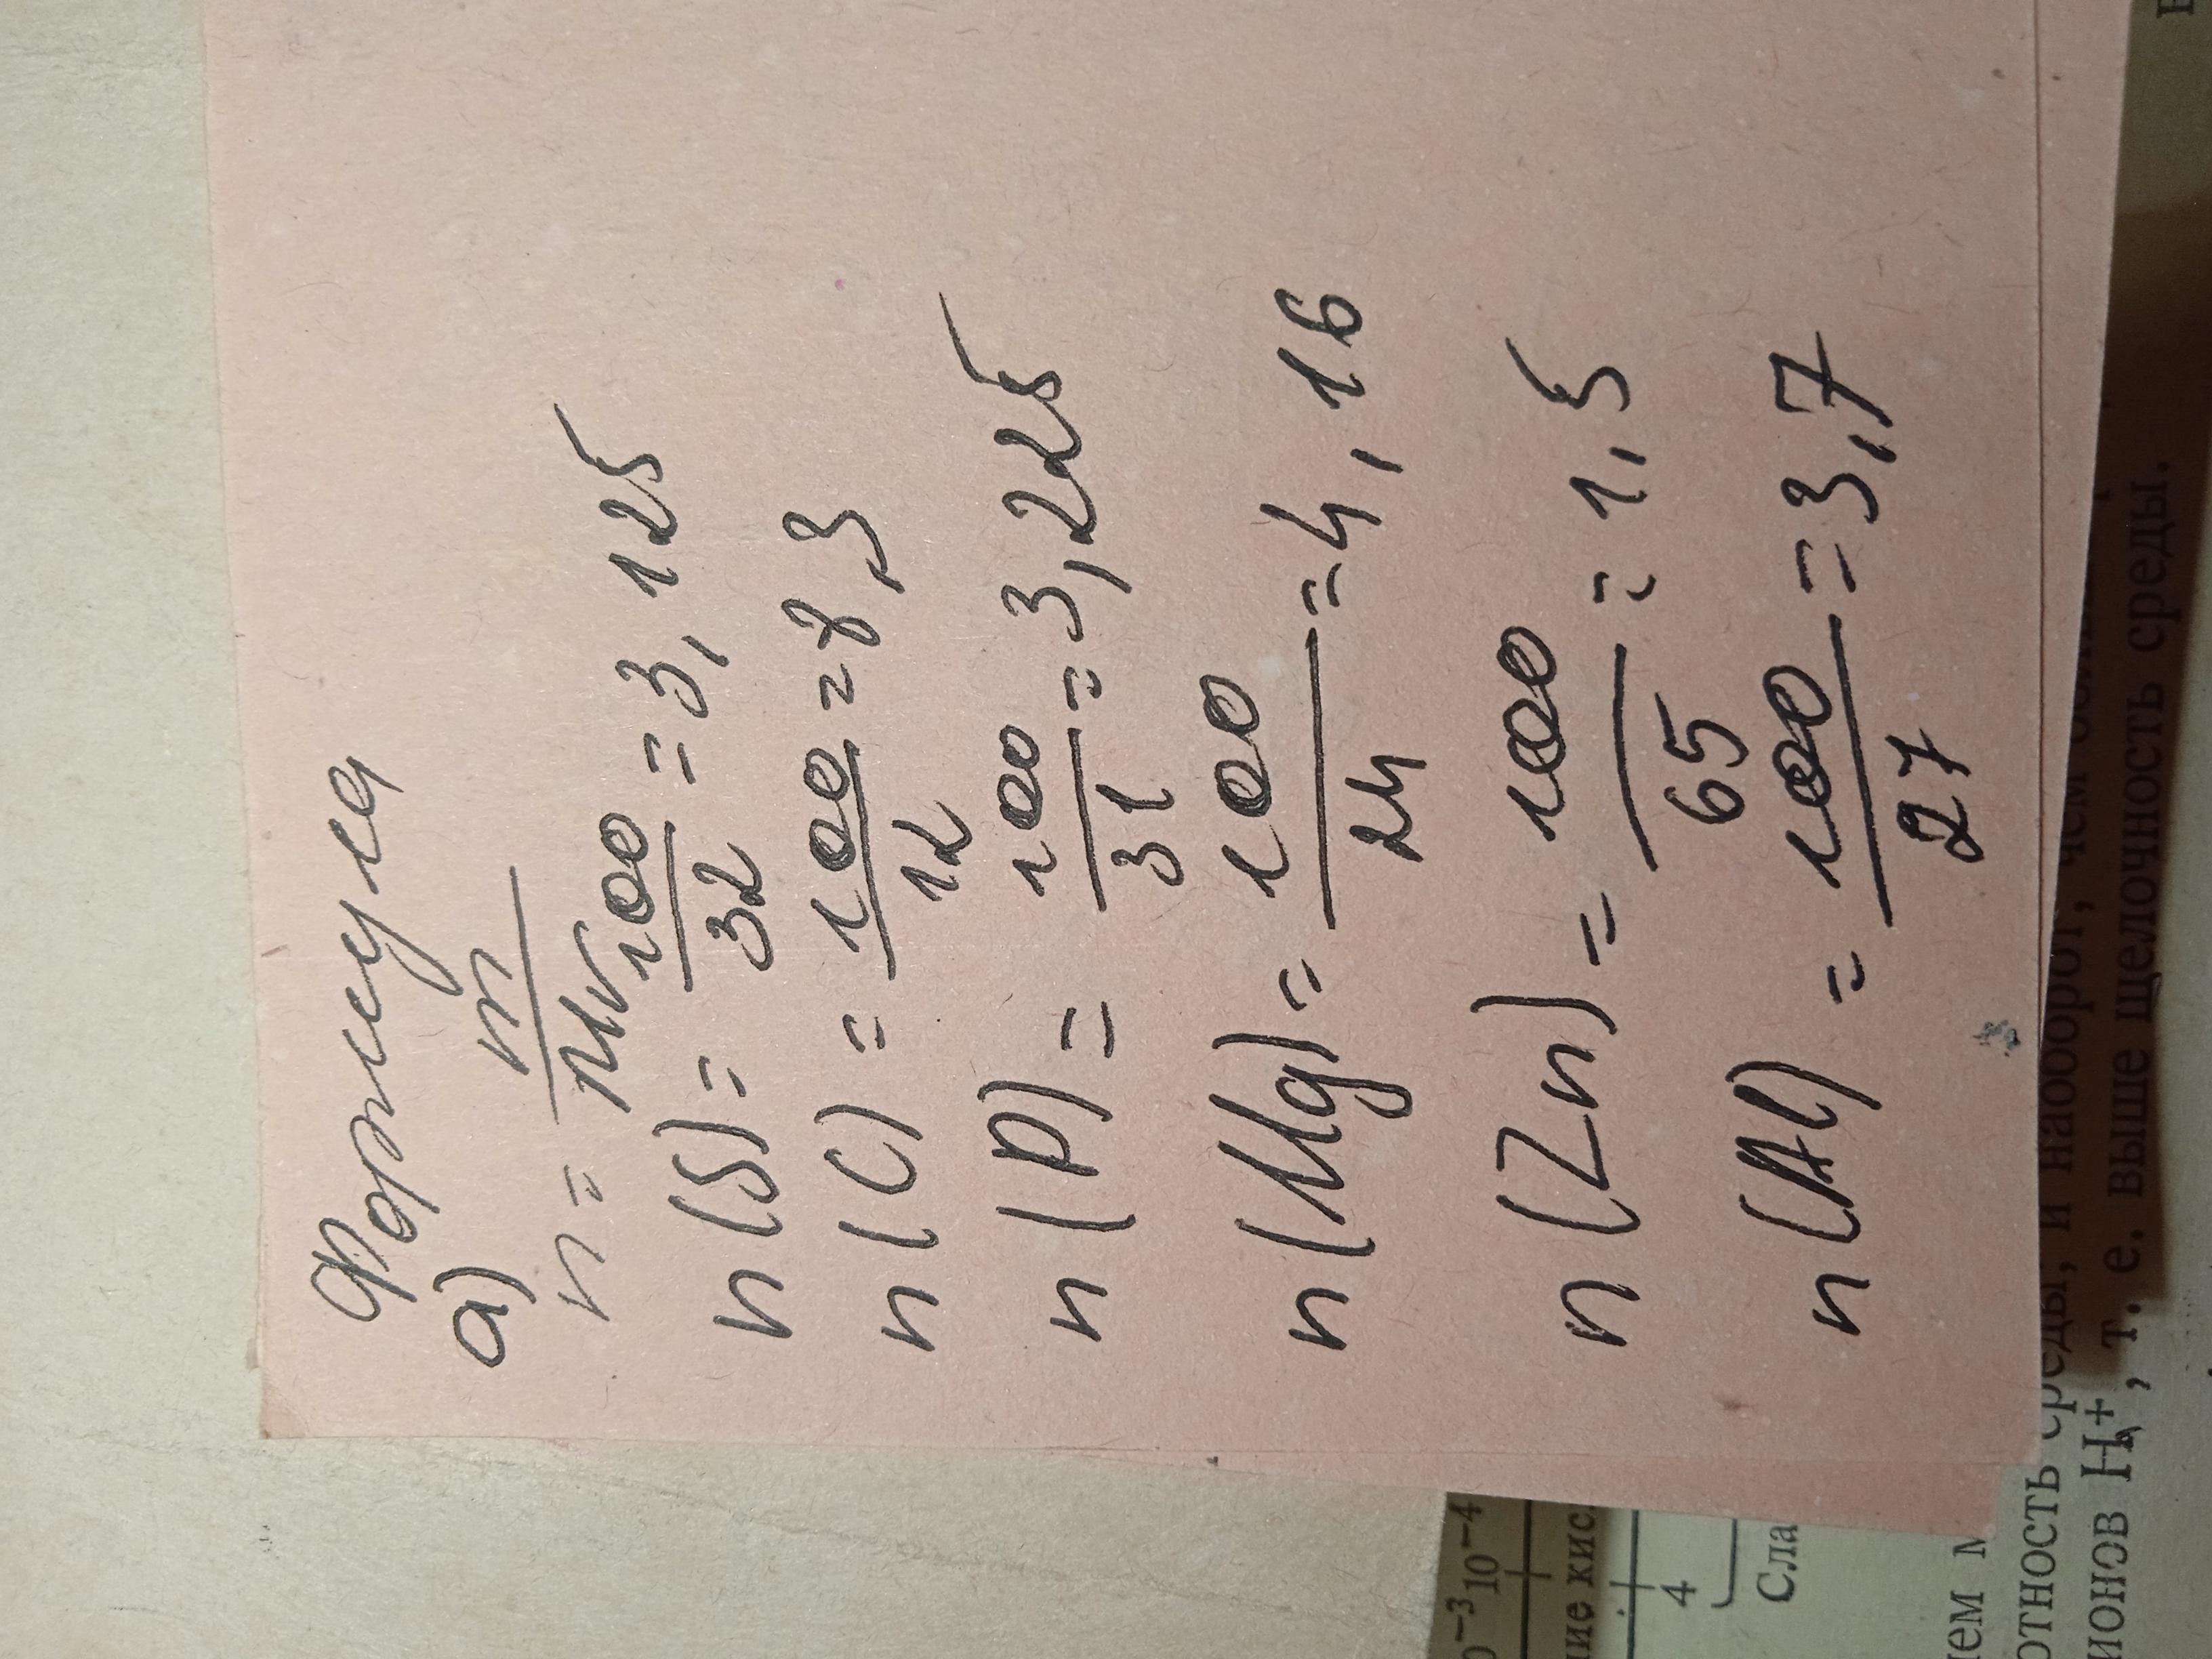 Формула
а)
n = m/Mr
n(S) = 100/32 = 3,125
n(C) = 100/12 = 8,3
n(P) = 100/31 = 3,225
n(Mg) = 100/24 = 4,16
n(Zn) = 100/65 = 1,5
n(Al) = 100/27 = 3,7
10⁻⁴
4
отность среды, и наоборот, чем
ионов H⁺, т. е. выше щелочность среды.